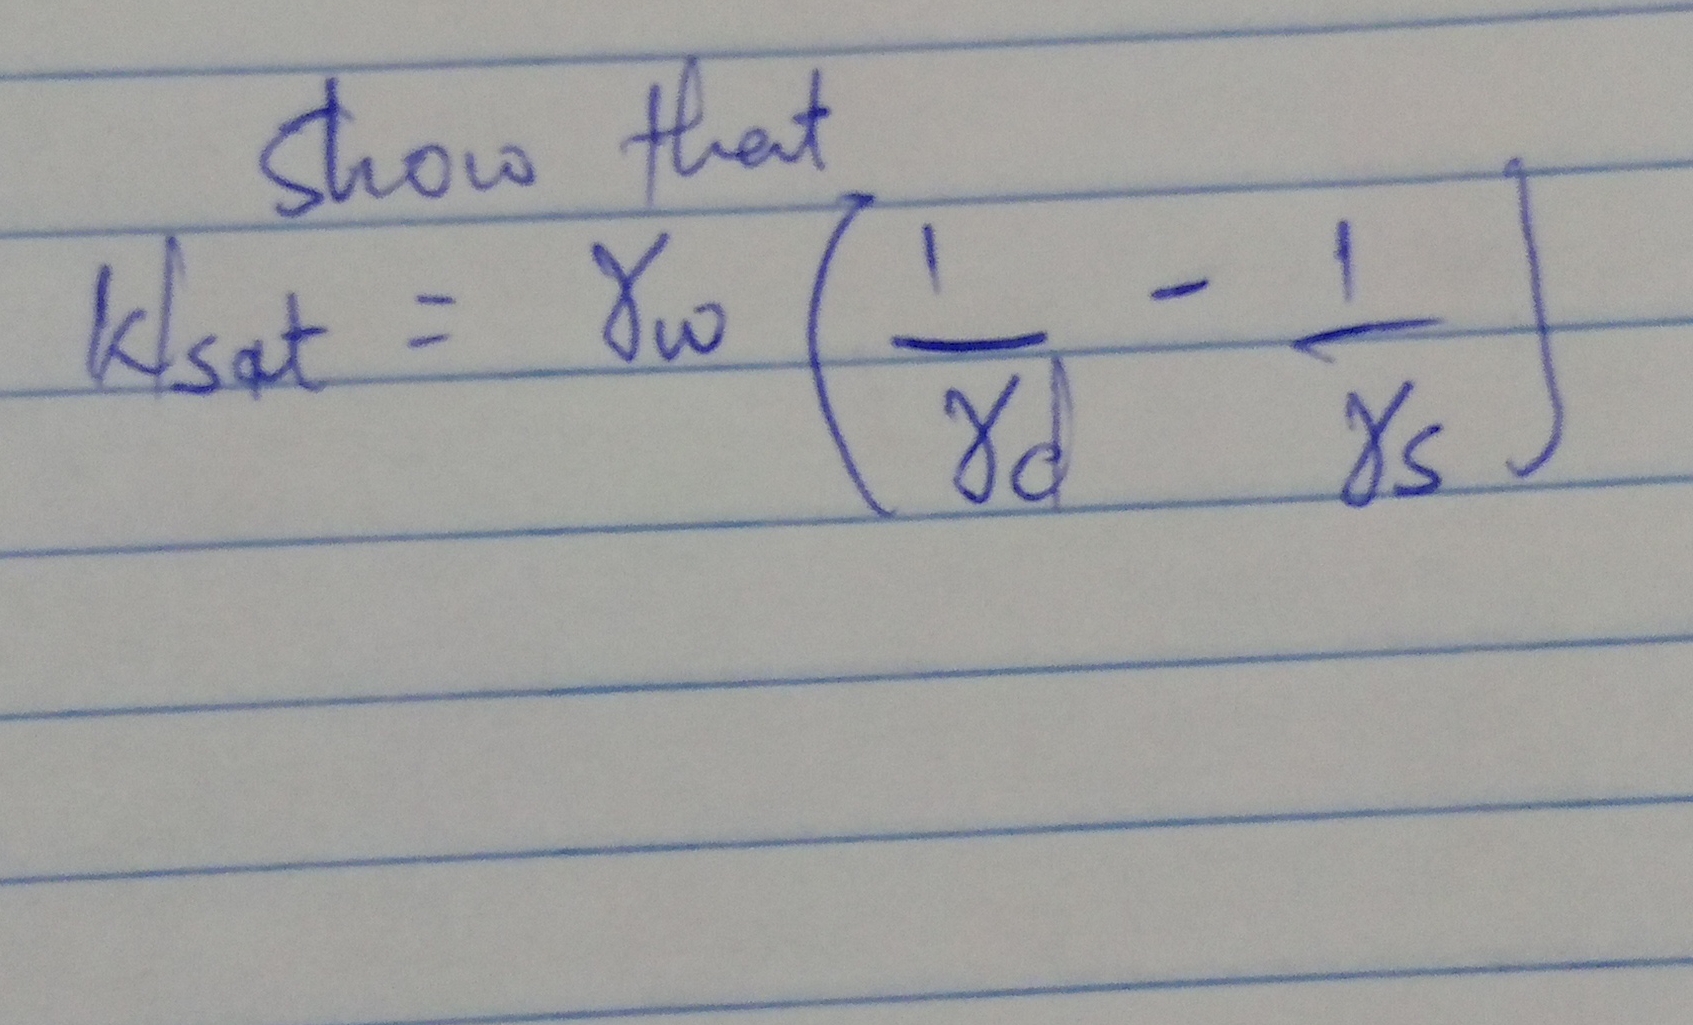 Show that
Wsat = γw (1/γd - 1/γs)